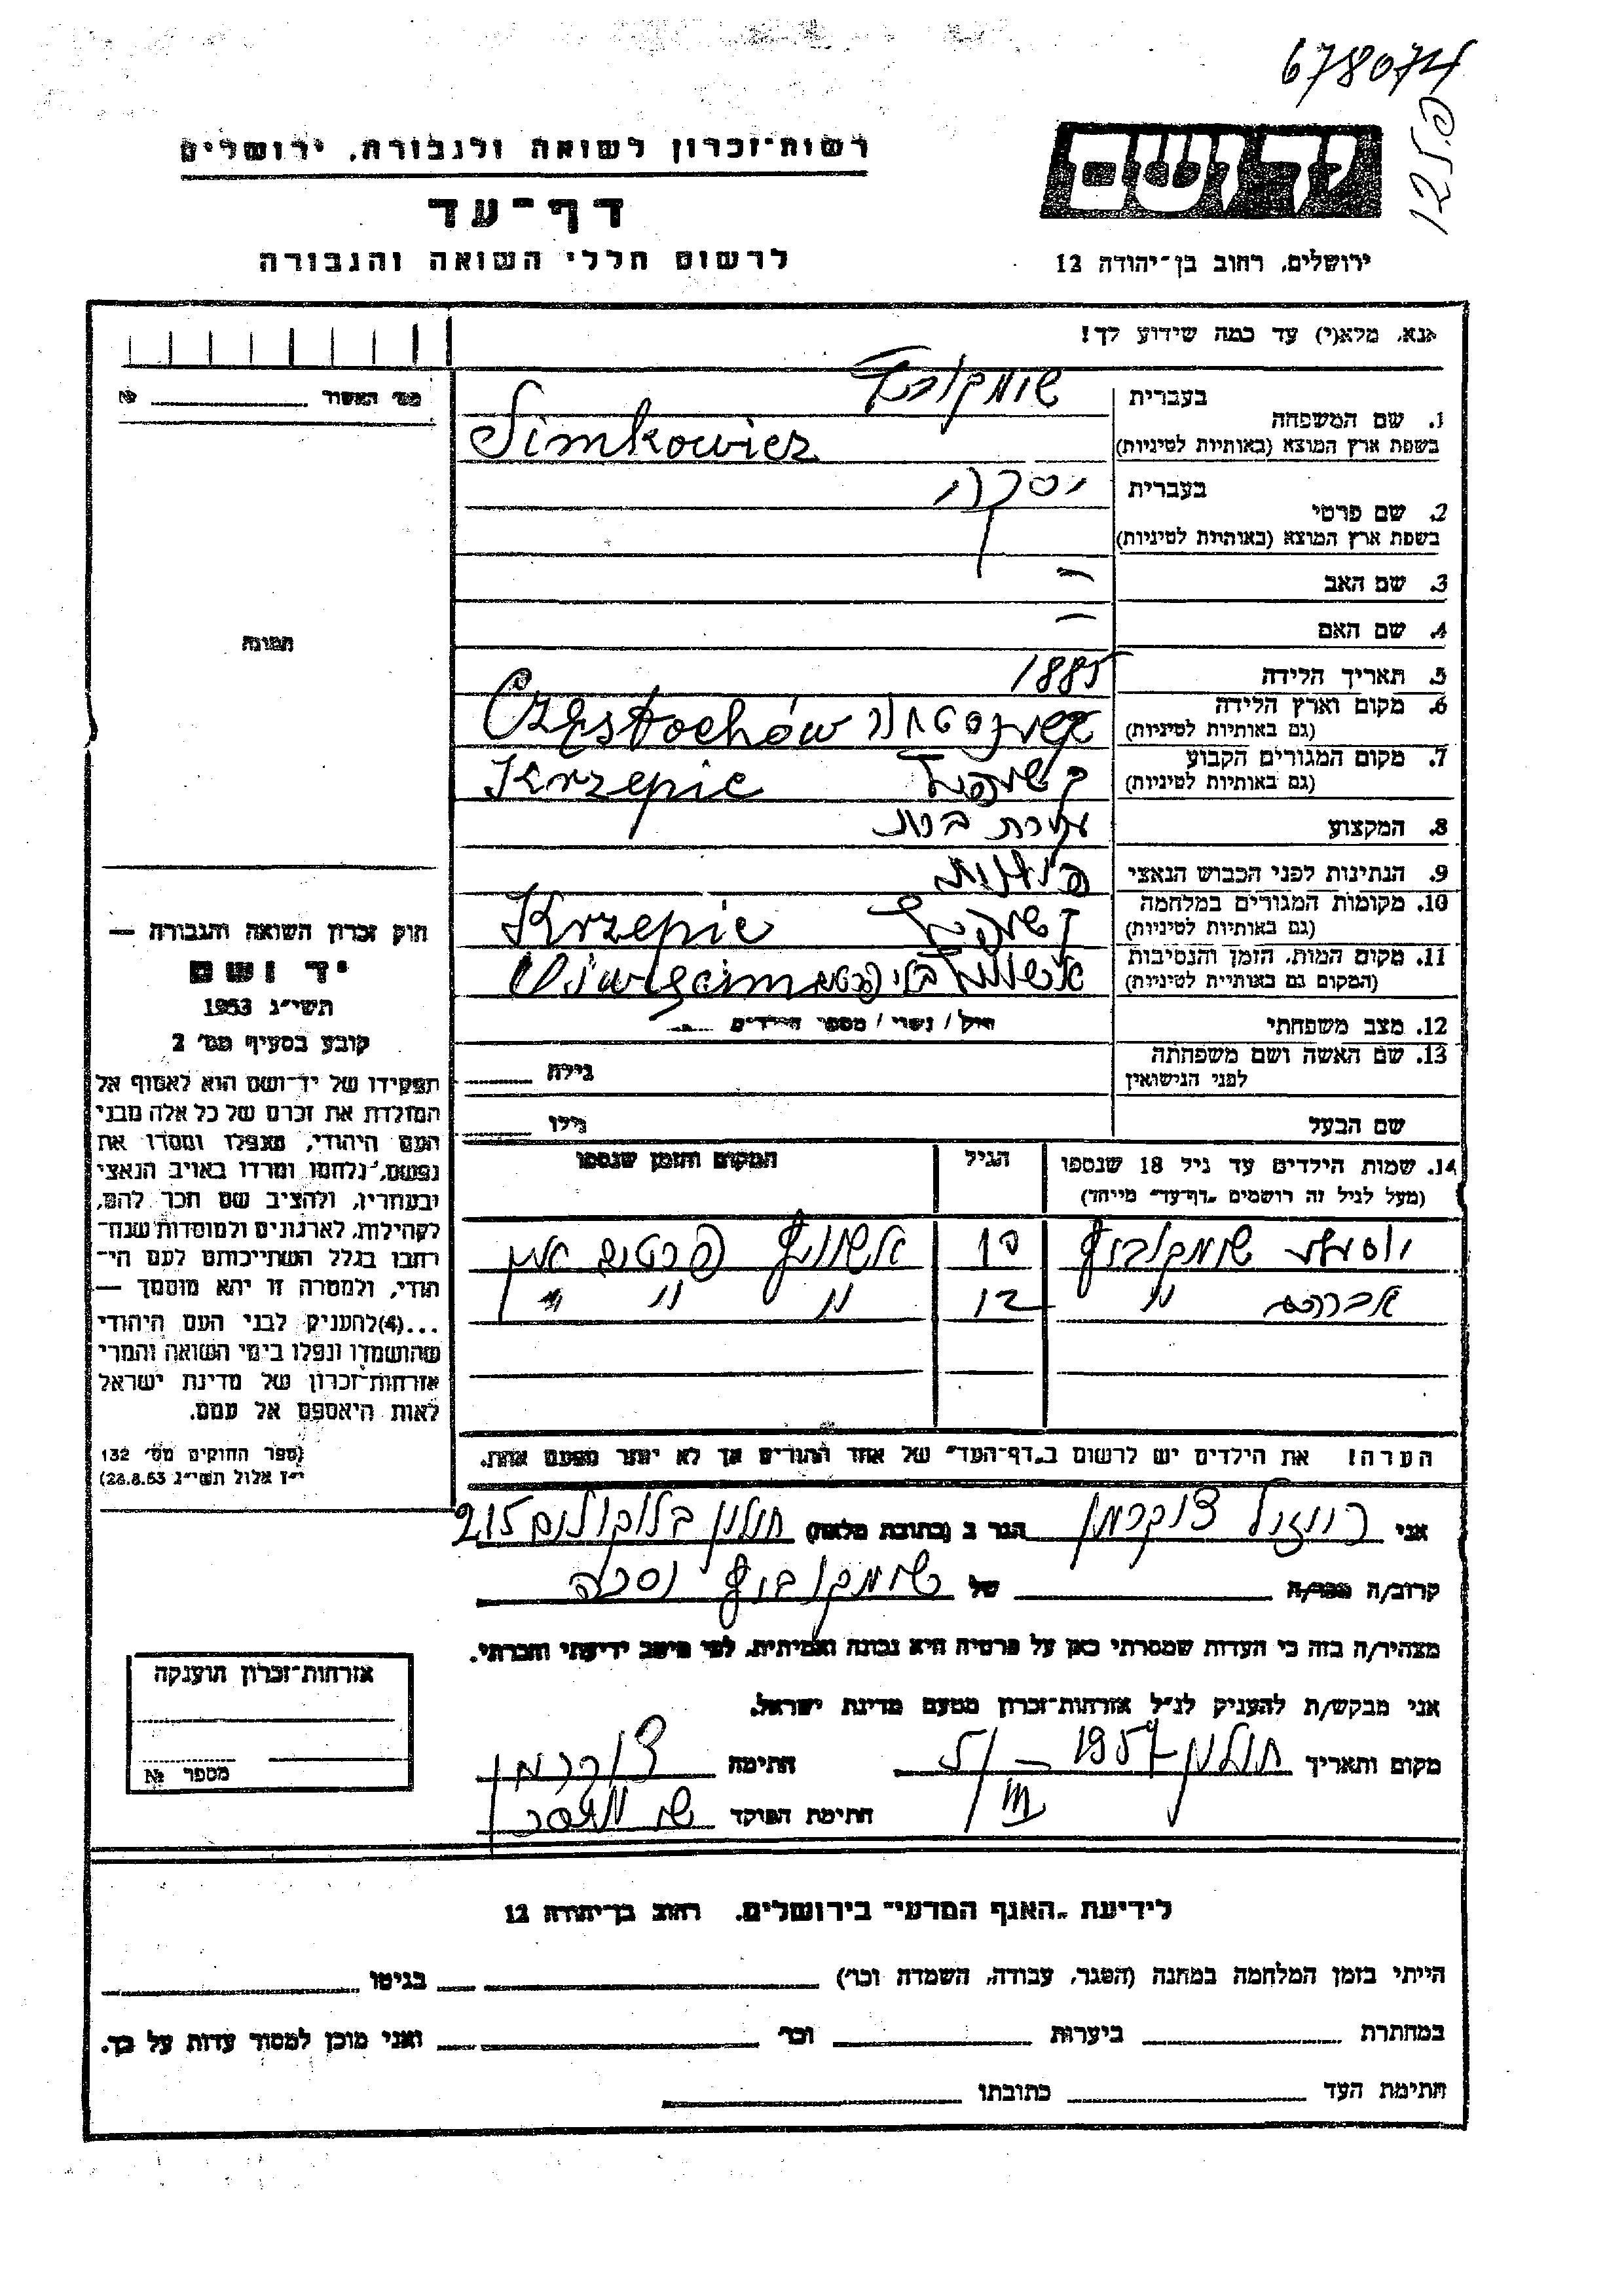 678074
רשות־זכרון לשואה ולגבורה, ירושלים
דף־עד
לרשום חללי השואה והגבורה
יד ושם
ירושלים, רחוב בן־יהודה 12
אנא, מלא(י) עד כמה שידוע לך!
מס' האשור № 
בעברית
1. שם המשפחה
בשפת ארץ המוצא (באותיות לטיניות)
Simkowicz
בעברית
2. שם פרטי
בשפת ארץ המוצא (באותיות לטיניות)
3. שם האב —
4. שם האם —
5. תאריך הלידה 1885
6. מקום וארץ הלידה
(גם באותיות לטיניות)
Częstochów
7. מקום המגורים הקבוע
(גם באותיות לטיניות)
Krzepic
8. המקצוע עקרת בית
9. הנתינות לפני הכבוש הנאצי פולנית
10. מקומות המגורים במלחמה
(גם באותיות לטיניות)
Krzepic
11. מקום המות, הזמן והנסיבות
(המקום גם באותיות לטיניות)
12. מצב משפחתי רווק / נשוי / מספר הילדים
13. שם האשה ושם משפחתה
לפני הנישואין
גילה
שם הבעל גילו
14. שמות הילדים עד גיל 18 שנספו
(מעל לגיל זה רושמים „דף־עד" מיוחד)
הגיל
המקום והזמן שנספו
שימקוביץ אושויץ פרטים אין
אברהם " 12 " " "
הערה! את הילדים יש לרשום ב„דף־העד" של אחד ההורים אך לא יותר מפעם אחת.
תמונה
חוק זכרון השואה והגבורה —
יד ושם
תשי"ג 1953
קובע בסעיף מס' 2
תפקידו של יד־ושם הוא לאסוף אל
המולדת את זכרם של כל אלה מבני
העם היהודי, שנפלו ומסרו את
נפשם, נלחמו ומרדו באויב הנאצי
ובעוזריו, ולהציב שם וזכר להם,
לקהילות, לארגונים ולמוסדות שנח־
רבו בגלל השתייכותם לעם הי־
הודי, ולמטרה זו יהא מוסמך —
...(4) להעניק לבני העם היהודי
שהושמדו ונפלו בימי השואה והמרי
אזרחות־זכרון של מדינת ישראל
לאות היאספם אל עמם.
(ספר החוקים מס' 132
י"ז אלול תשי"ג 28.8.53)
אני צוקרמן הגר ב (כתובת מלאה) חולון 215
קרוב/ה מכר/ה של שימקוביץ
מצהיר/ה בזה כי העדות שמסרתי כאן על פרטיה היא נכונה ואמיתית, לפי מיטב ידיעתי והכרתי.
אני מבקש/ת להעניק לנ"ל אזרחות־זכרון מטעם מדינת ישראל.
מקום ותאריך חולון 1957 – III/5 חתימה צוקרמן
חתימת הפוקד
אזרחות־זכרון הוענקה
מספר №
לידיעת „האגף המדעי" בירושלים, רחוב בן־יהודה 12
הייתי בזמן המלחמה במחנה (הסגר, עבודה, השמדה וכו') בגיטו
במחתרת ביערות וכו' ואני מוכן למסור עדות על כך.
חתימת העד כתובתו